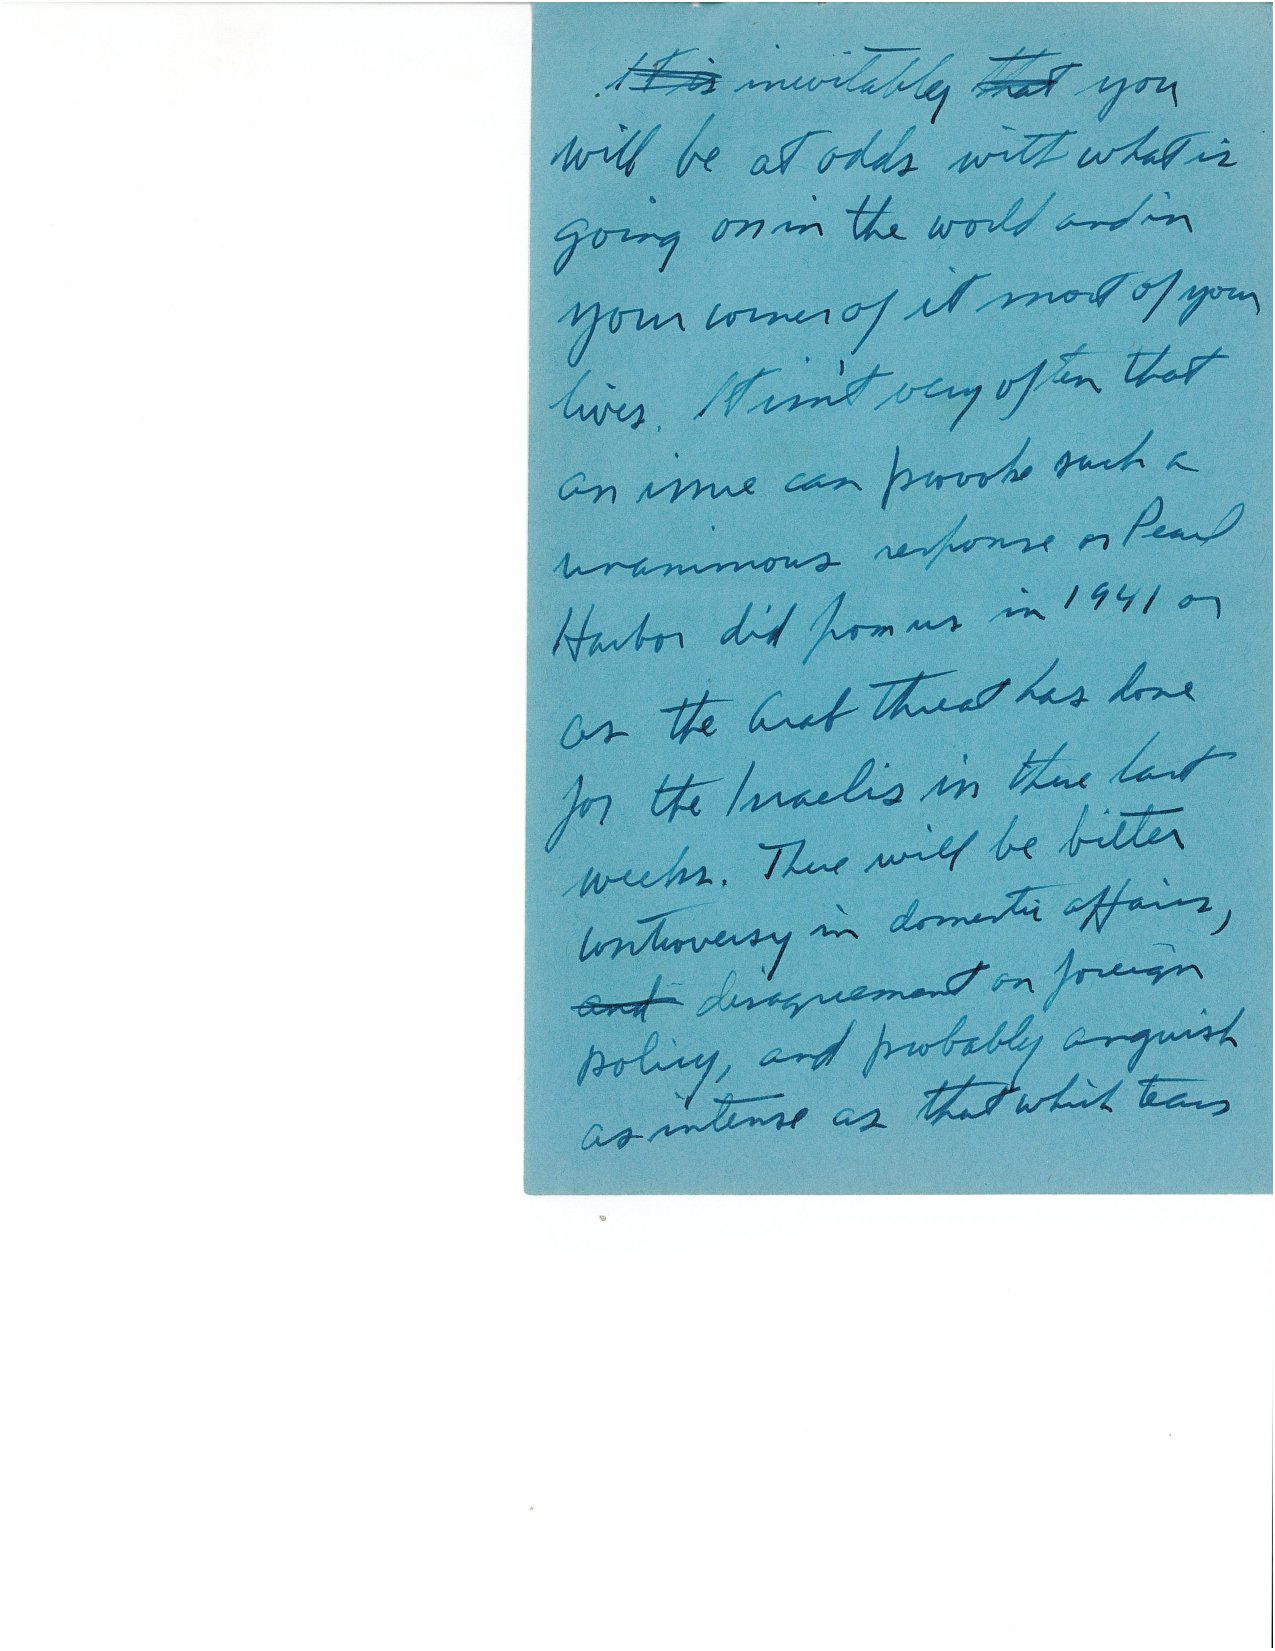 It is inevitably that you
will be at odds with what is
going on in the world and in
your corner of it most of your
lives. It isn't very often that
an issue can provoke such a
unanimous response as Pearl
Harbor did from us in 1941 or
as the Arab threat has done
for the Israelis in these last
weeks. There will be bitter
controversy in domestic affairs,
and disagreement on foreign
policy, and probably anguish
as intense as that which tears